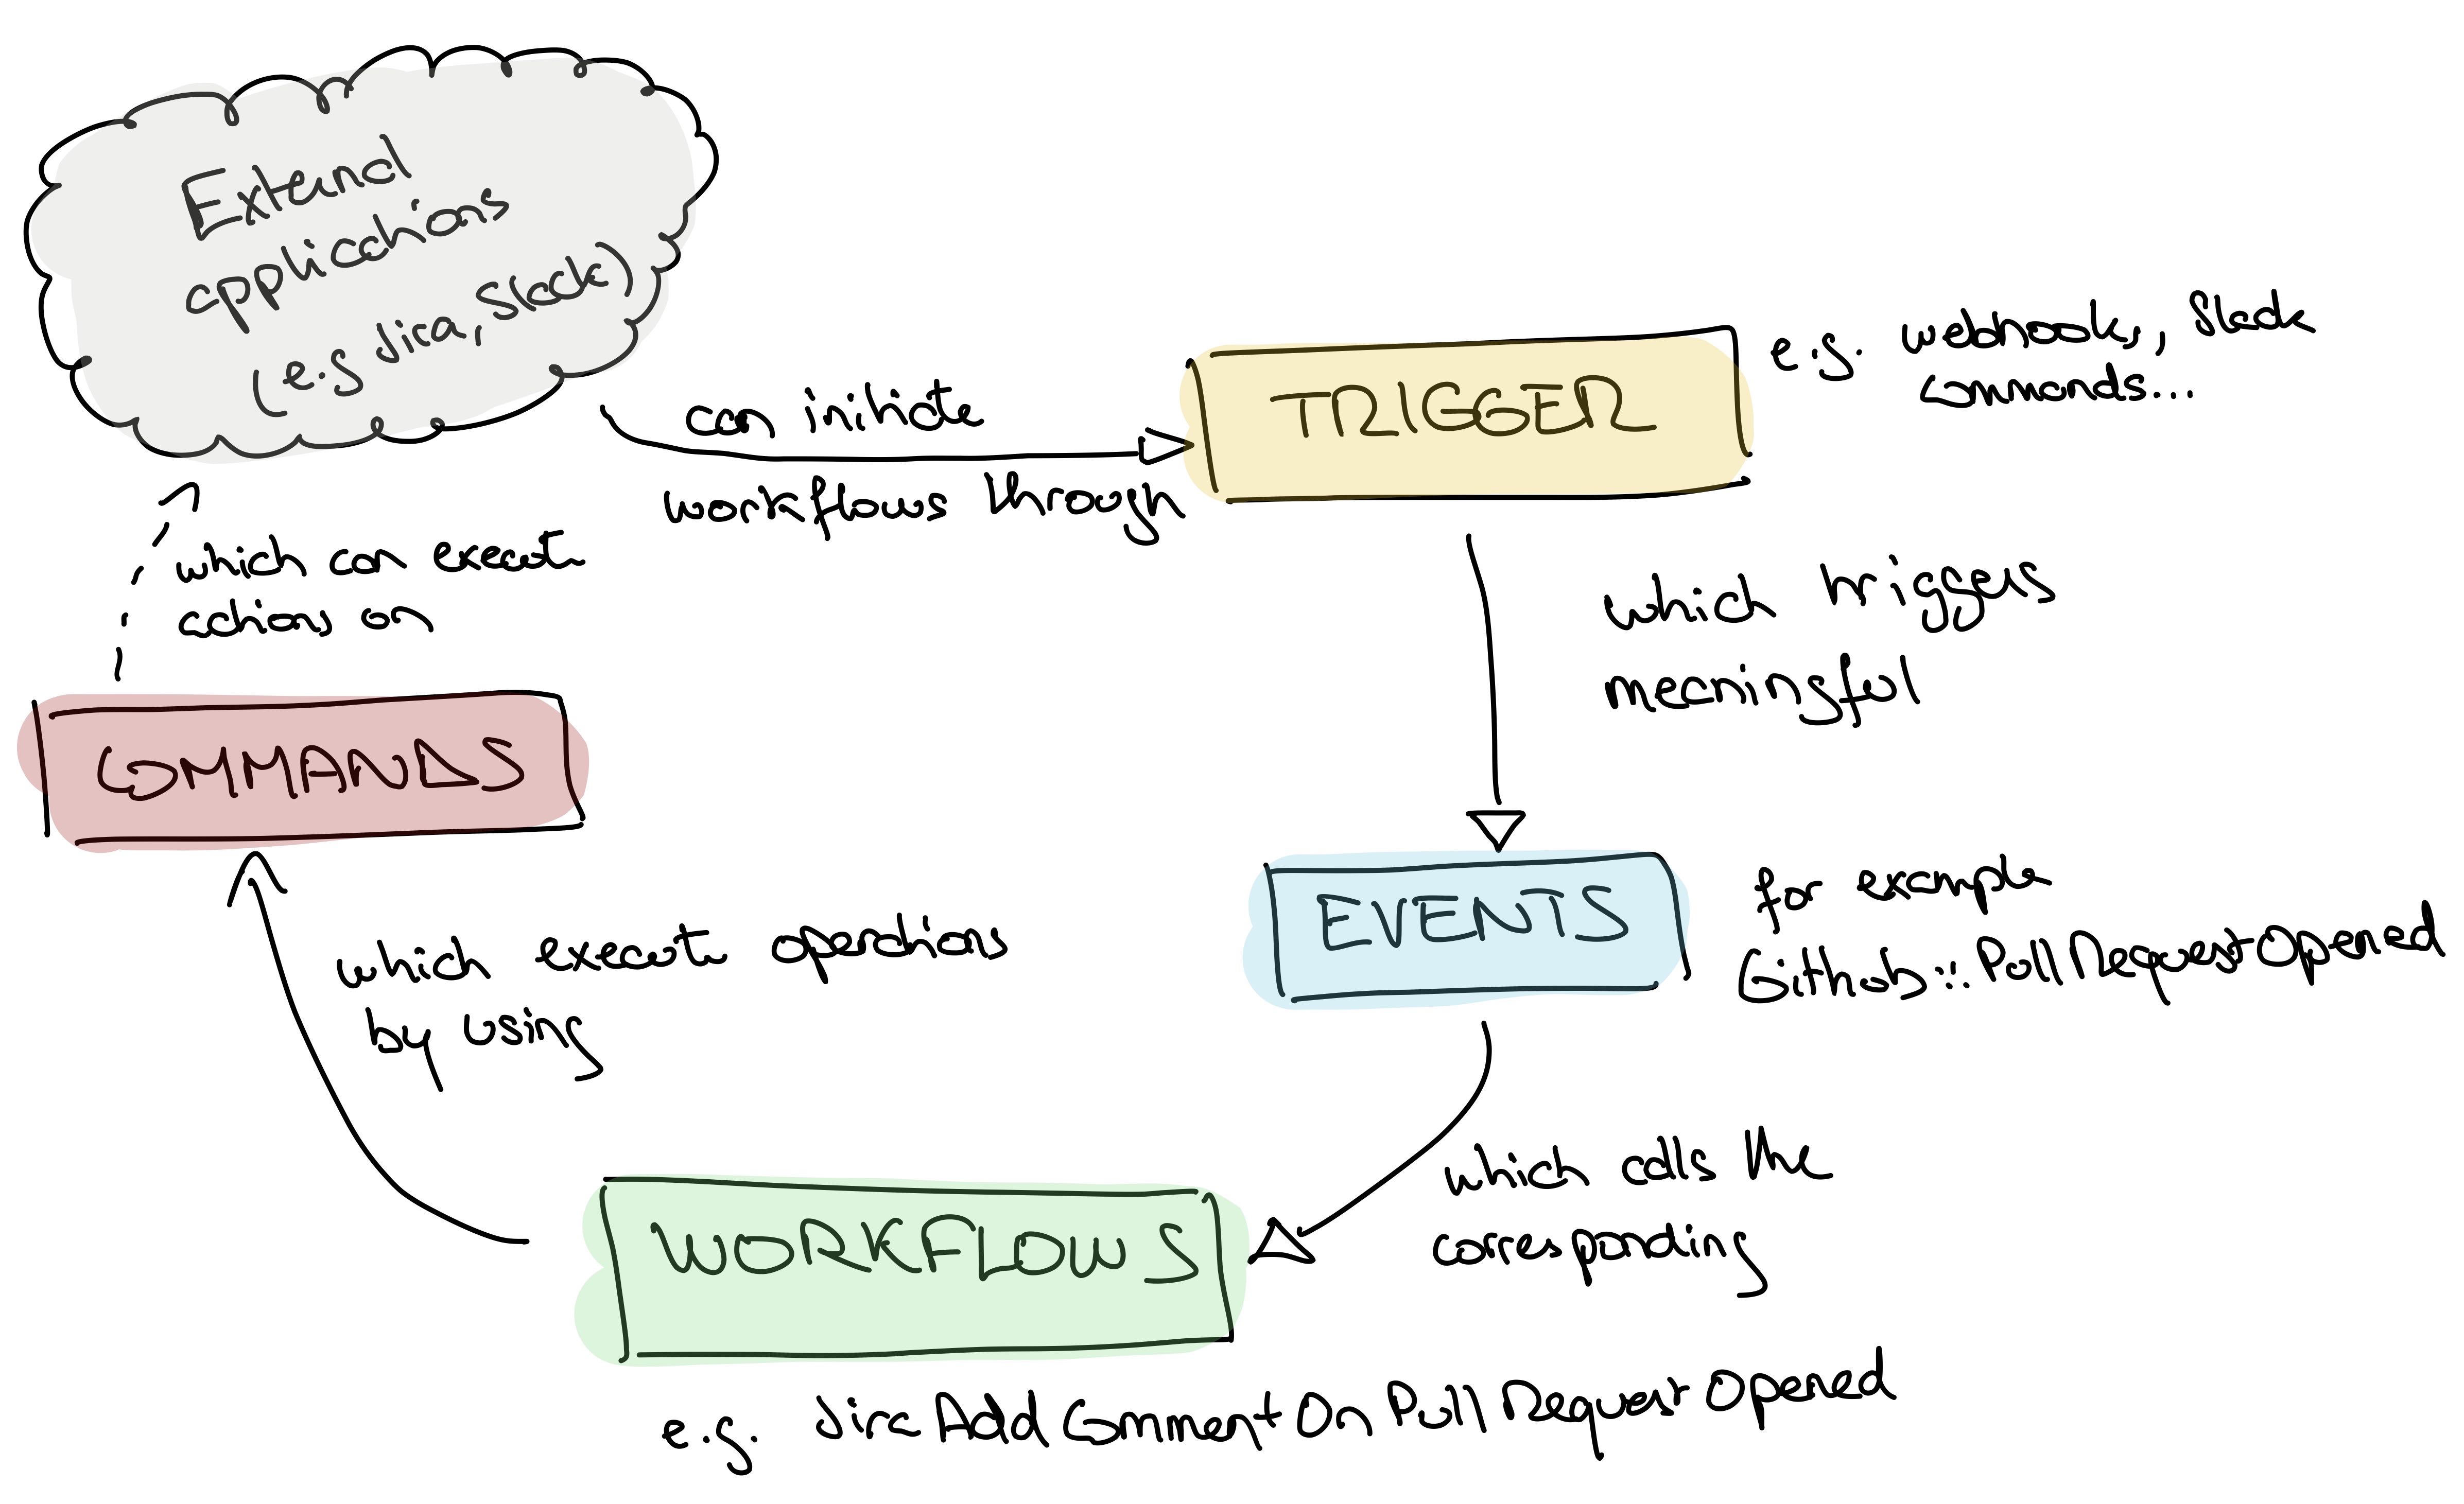 External
applications
(e.g Jira, Slack)
can initiate
workflows through
TRIGGER
e.g. webhooks, Slack
commands...
which triggers
meaningful
EVENTS
for example
Github::PullRequestOpened
which calls the
corresponding
WORKFLOWS
e.g. JiraAddCommentOnPullRequestOpened
which execute operations
by using
COMMANDS
which can execute
actions on